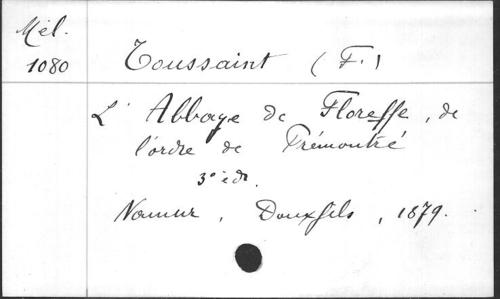 Mél.
1080
Toussaint (F.)
L'Abbaye de Floreffe, de
l'ordre de Prémontré
3e éd.
Namur, Douxfils, 1879.